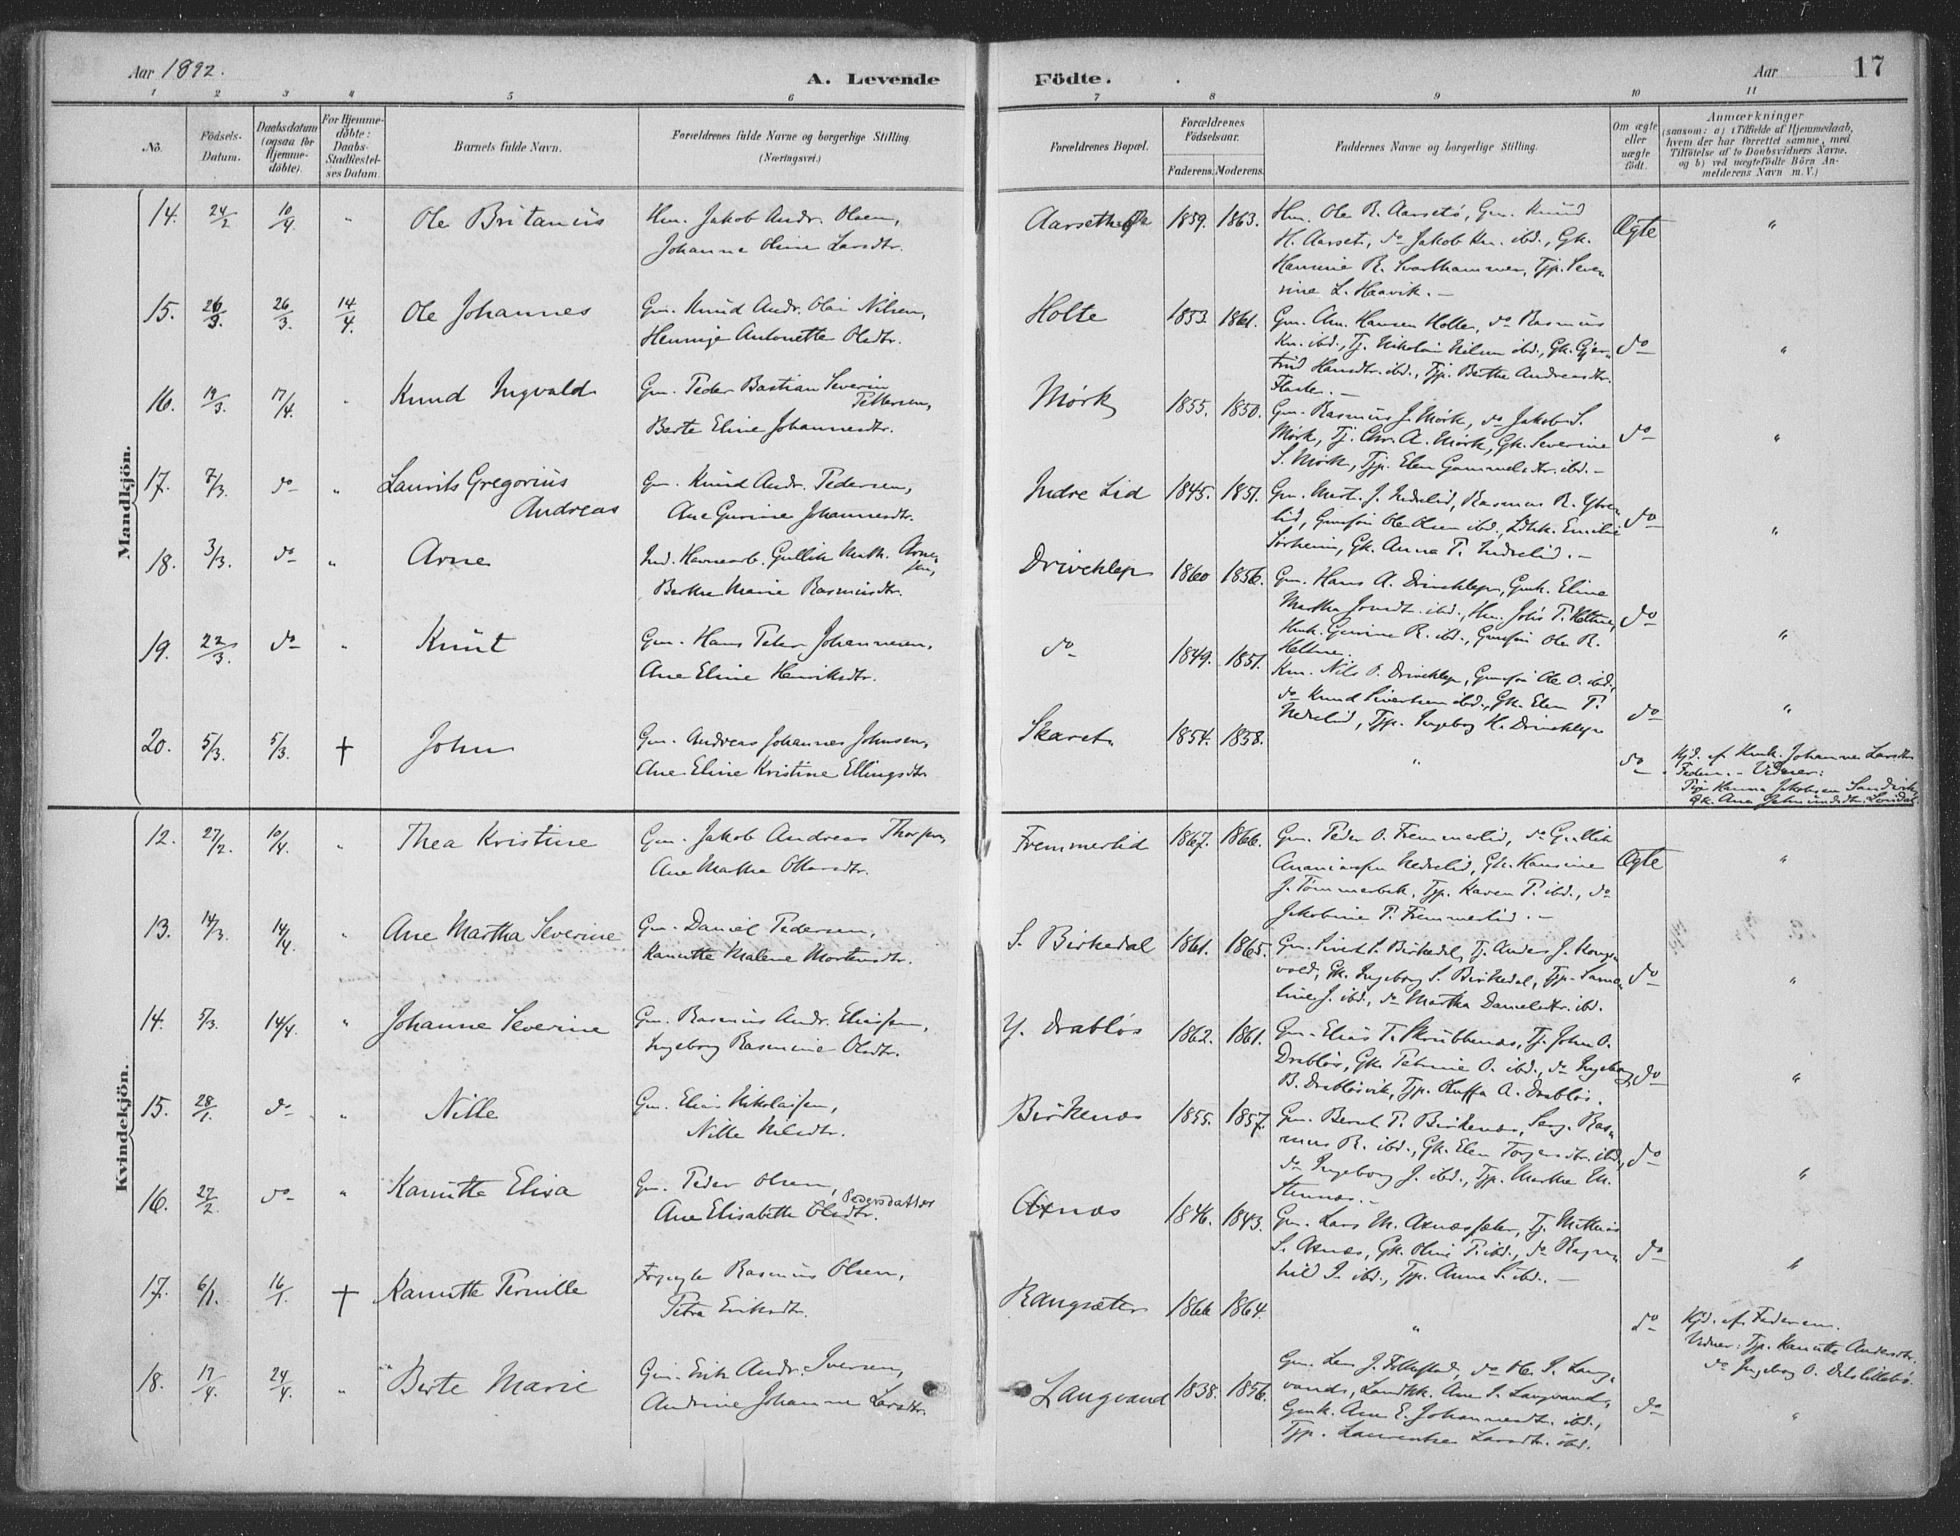 Aar 1892.
A. Levende
Födte.
Aar
17
1 2 3 4 5 6 7 8 9 10 11
No.
Födsels-
Datum.
Daabsdatum
(ogsaa for
Hjemme-
døbte).
For Hjemme-
døbte:
Daabs-
Stadfæstel-
ses Datum.
Barnets fulde Navn.
Forældrenes fulde Navne og borgerlige Stilling
(Næringsvei.)
Forældrenes Bopæl.
Forældrenes
Födselsaar.
Faderens. Moderens.
Faddernes Navne og borgerlige Stilling.
Om ægte
eller
uægte
født.
Anmærkninger
(saasom: a) i Tilfælde af Hjemmedaab,
hvem der har forrettet samme, med
Tilföielse af to Daabsvidners Navne,
og b) ved uægtefødte Börn An-
melderens Navn m. V.)
Mandkjön.
14. 24/2 10/4 " Ole Britanius
Hm. Jakob Andr. Olsen,
Johanne Oline Larsdtr.
Aarseth 1859. 1863.
Hm. Ole R. Aarset, Gm. Knud
H. Aarset, do Jakob Kn. ibd., Gk.
Hansine R. Svarthammer, Tjp. Seve-
rine L. Haavik. –
Ægte "
15. 26/3. 26/3. 14/4. Ole Johannes
Gm. Knud Andr. Olai Nilsen,
Hennige Antonette Olsdtr.
Holte 1853. 1861.
Gm. Hansen Holte, do Rasmus
Kn. ibd., Tj. Nikolai Nilsen ibd., Gk. Gjer-
trud Hansdtr. ibd., Tjp. Berthe Andreasdtr.
do "
16. 19/3. 17/4. " Knud Ingvald
Gm. Peder Bastian Severin
Pettersen,
Berte Eline Johannesdtr.
Mørk 1855. 1850.
Gm. Rasmus J. Mørk, do Jakob S.
Mørk, Tj. Chr. A. Mørk, Gk. Severine
S. Mørk, Tjp. Elen Gammelsdtr. ibd. –
do "
17. 7/3. do " Laurits Gregorius
Andreas
Gm. Knud Andr. Pedersen,
Ane Gurine Johannesdtr.
Indre Lid 1845. 1851.
Gm. Mart. J. Indrelid, Rasmus R. Ytre-
lid, Gmsføn Ole Olsen ibd., Emilie
Sørheim, Gk. Anna P. Indrelid. –
do "
18. 3/3. do " Arne
Ind. Havnearb. Gullik Math. Arne-
sen,
Berthe Marie Rasmusdtr.
Driveklep 1860 1856.
Gm. Hans A. Driveklep, Gmk. Eline
Martha ibd., Hm. Johs P. Heltne,
Hmk. Gurine R. ibd., Gmsføn Ole R.
Heltne.
do "
19. 22/3. do " Knut
Gm. Hans Peter Johannesen,
Ane Eline Henriksdtr.
do 1849. 1851.
Km. Nils O. Driveklep, Gmsføn Ole O. ibd.,
do Knud Sivertsen ibd., Gk. Elen P.
Nedrelid, Tjp. Ingeborg H. Driveklep
do "
20. 5/3. 5/3. † John
Gm. Andreas Johannes Johnsen,
Ane Eline Kristine Ellingsdtr.
Skaret. 1854. 1858.
" do
Hjd. af Kmk. Johanne Larsdtr.
– Vidner:
Pige Hanna Jakobsen Sandvik,
Gk. Ane
Kvindekjön.
12. 27/2. 10/4. " Thea Kristine
Gm. Jakob Andreas Thorsen,
Ane Marthe Ottarsdtr.
Fremmerlid 1867. 1866.
Gm. Peder O. Fremmerlid, do Gullik
Ananiassen Nedrelid, Gk. Hansine
J. Tømmerbak, Tjp. Karen P. ibd., do
Jakobine P. Fremmerlid. –
Ægte "
13. 14/3. 14/4. " Ane Martha Severine
Gm. Daniel Pedersen,
Kanutte Malene Mortensdtr.
S. Birkedal 1861. 1865.
Gm. Sivert S. Birkedal, Tj. Anders J. Kongs-
vold, Gk. Ingeborg S. Birkedal, Tjp.
J. ibd., do Martha Danielsdtr. ibd.
do "
14. 5/3. 14/4. " Johanne Severine
Gm. Rasmus Andr. Eliassen,
Ingeborg Rasmine Olsdtr.
Y. Drabløs 1862. 1861.
Gm. Elias T. Skrubbenæs, Tj. John O.
Drabløs, Gk. Petrine O. ibd., do Ingeborg
B. Drabløsvik, Tjp. Oluffa A. Drabløs.
do "
15. 28/1. do " Nille
Gm. Elias Nikolaisen,
Nille Nilsdtr.
Birkenæs 1855. 1857.
Gm. Bernt P. Birkenæs, Serg. Ras-
mus R. ibd., Gk. Elen Torgersdtr. ibd.,
do Ingeborg J. ibd., Tjp. Marthe M.
Stennæs. –
do "
16. 27/2. do " Kanutte Elisa
Gm. Peder Olsen,
Pedersdatter
Ane Elisabeth Olsdtr.
Axnæs 1846. 1843.
Gm. Lars M. Axnæssæter, Tj. Mathias
S. Axnæs, Gk. Oline P. ibd., do Ragn-
hild P. ibd., Tjp. Anna S. ibd. –
do "
17. 6/1. 16/1. † Kanutte Pernille
Rasmus Olsen,
Petra Eriksdtr.
Kangsæter 1866 1864.
" do
Hjd. af Faderen.
Vidner: Tjp. Kanutte Andersdtr.
do Ingeborg O.
18. 17/4. 24/4. " Berte Marie
Gm. Erik Andr. Iversen,
Andrine Johanne Larsdtr.
Langvand 1838. 1856.
Gm. Lars J. Folkestad, do Ole I. Lang-
vand, Landhk. Ane S. Langvand,
Gmk. Ane E. Johannesdtr. ibd.,
Tjp. Laurentse Larsdtr. ibd.
do "